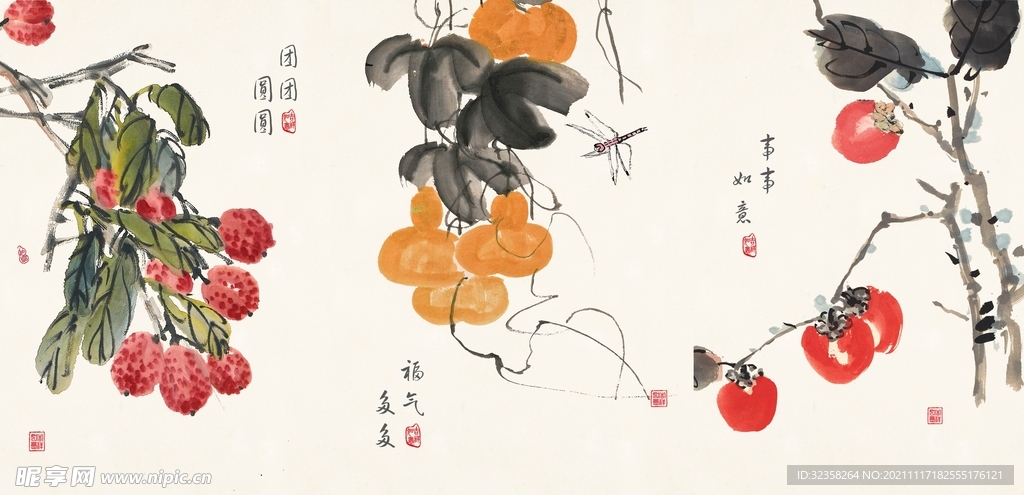 团团
圆圆
福气
多多
事事
如意
昵享网 www.nipic.cn
ID:32358264 NO:20211117182555176121